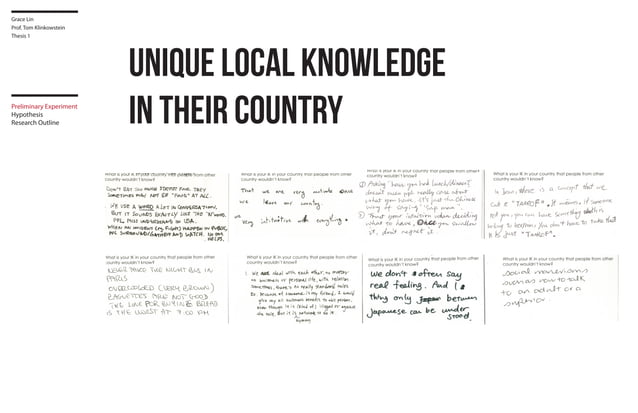 Grace Lin
Prof. Tom Klinkowstein
Thesis 1
UNIQUE LOCAL KNOWLEDGE
IN THEIR COUNTRY
Preliminary Experiment
Hypothesis
Research Outline
What is your IK in your country that people from other
country wouldn't know?
DON'T EAT TOO MUCH
THEY
SOMETIMES MAY NOT BE "FUNS" AT ALL.
WE USE A WORD A LOT IN CONVERSATION,
BUT IT SOUNDS EXACTLY LIKE THE 'N' WORD.
PPL MISS UNDERSTAND IN USA.
WHEN AN ACCIDENT (EG. FIGHT) HAPPEN IN PUBLIC,
PPL SURROUND/GATHER AND WATCH. NO ONE
HELPS.
What is your IK in your country that people from other
country wouldn't know?
That we are very outside once
we leave our country.
we
very intuitive with everything.
What is your IK in your country that people from other
country wouldn't know?
① Asking "have you had lunch/dinner?"
doesn't mean ppl really care about
what you have. It's just the Chinese
way of saying "Sup man".
② Trust your intuition when deciding
what to have, once you swallow
it, don't regret it.
What is your IK in your country that people from other
country wouldn't know?
In Java, there is a concept that we
call it "TAKEOF". It means, if someone
you can have something
to
You don't have to take that
It is just "TAKEOF".
What is your IK in your country that people from other
country wouldn't know?
NEVER TAKE THE NIGHT BUS IN
PARIS
OVERCOOKED (VERY BROWN)
BAGUETTES ARE NOT GOOD
THE LINE FOR BUYING BREAD
IS THE WORST AT 7:00 PM
What is your IK in your country that people from other
country wouldn't know?
1. We are deal with each other, no matter
on business or personal life, with relation.
Sometimes, there's no really standard rules
to. because if someone is my friend, I would
give my all business needs to the person,
even though it is kind of illegal or against
the rule. But it is
to do it.
What is your IK in your country that people from other
country wouldn't know?
We don't often say
real feeling. And
thing only between
Japanese can be under
stood.
What is your IK in your country that people from other
country wouldn't know?
social
such as how to talk
to an adult or a
superior